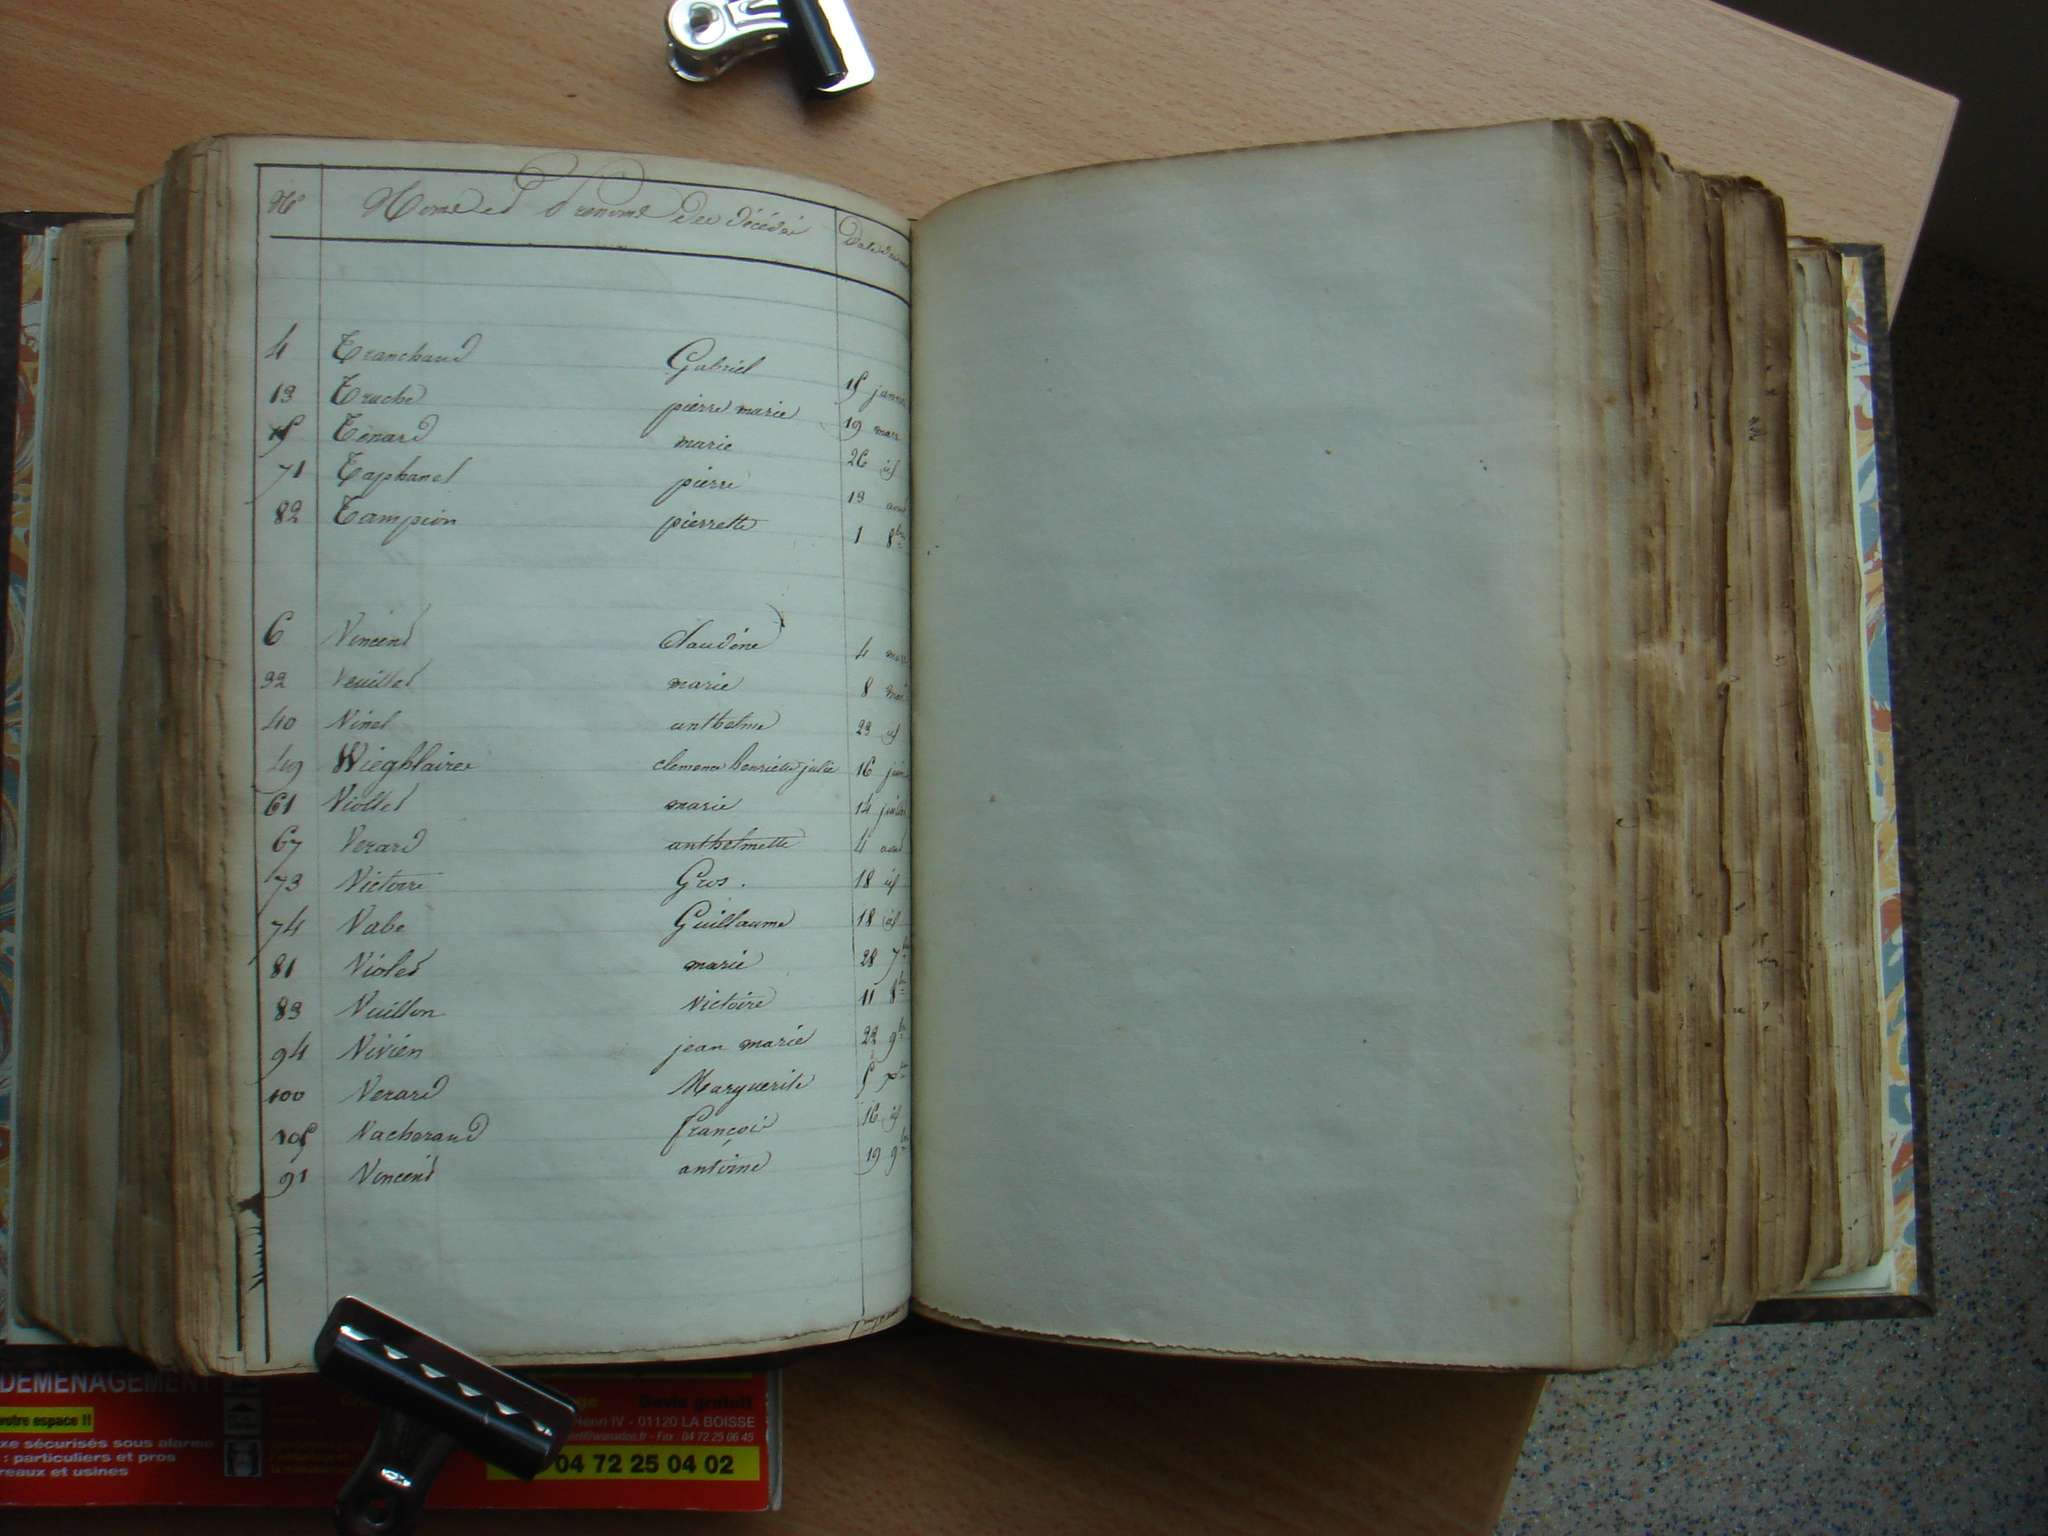 No Noms et Prénoms des décédés Date
4 Tranchand Gabriel 15
13 Truche pierre marie 19 mars
15 Tenard marie 26 id
71 Taphanel pierre 13 août
82 Tampion pierrette 1 8bre
6 Vincent Claudine 4 mars
32 Veuillet marie 8 mai
40 Vinet anthelme 23 id
49 Wieghlaires clemence henriette julie 16 juin
61 Viollet marie 14 juillet
67 Verard anthelmette 4 août
73 Victoire Gros. 18 id
74 Vabe Guillaume 18 id
81 Violet marie 28 7bre
83 Vuillon victoire 11 8bre
94 Vivien jean marie 22 9bre
100 Verard Marguerite 5
105 Vacherand françois 16 id
91 Vincent antoine 19 9bre
DEMENAGEMENT
Devis gratuit
votre espace !!
Henri IV - 01120 LA BOISSE
Fax : 04 72 25 06 45
xe sécurisés sous alarme
: particuliers et pros
reaux et usines
04 72 25 04 02